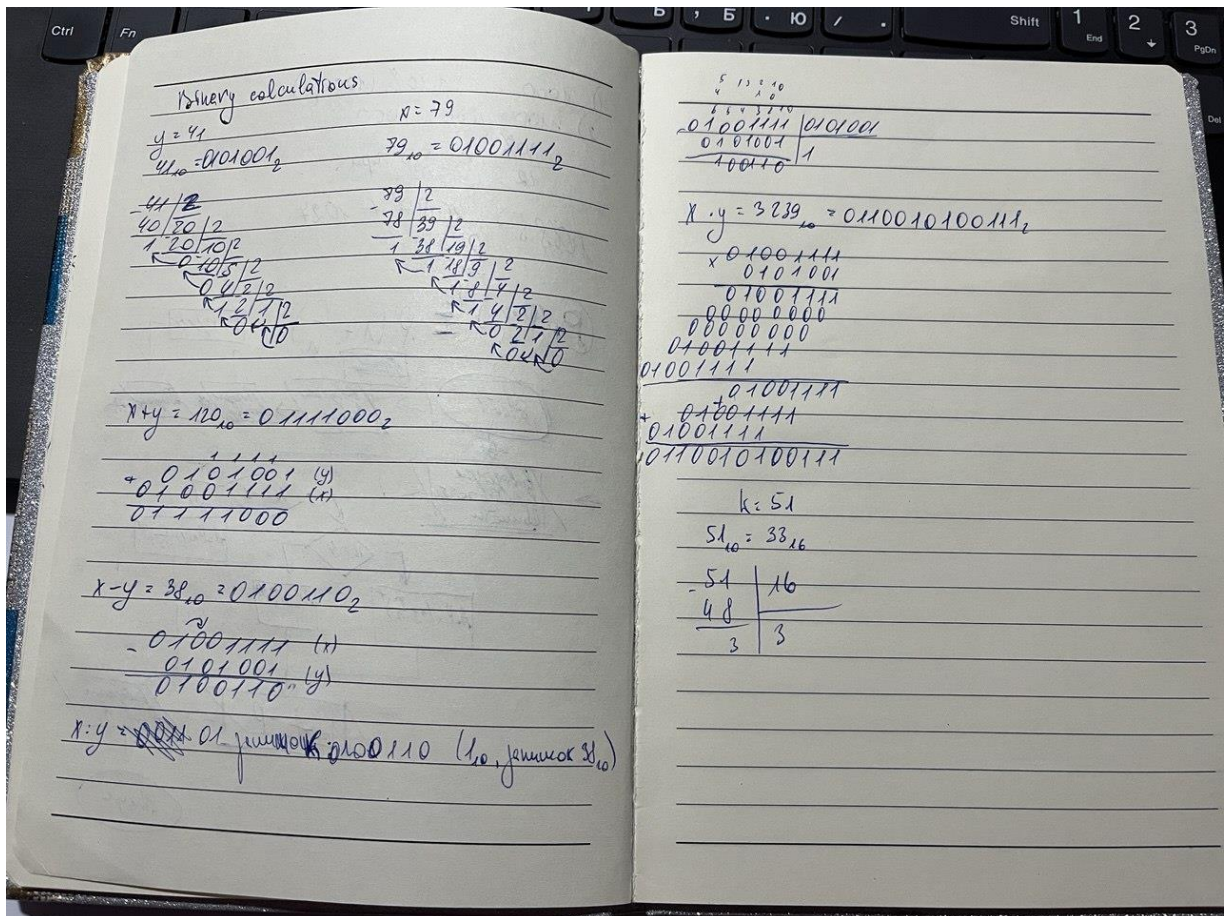 Ctrl
Fn
Б
, Б
. Ю
/ .
Shift
1
End
2
3
PgDn
Del
Binary calculations
y = 41
x = 79
41₁₀ = 0101001₂
79₁₀ = 01001111₂
41 | 2
40 | 20 | 2
1 20 | 10 | 2
0 10 | 5 | 2
0 4 | 2 | 2
1 2 | 1 | 2
0 | 0
79 | 2
- 78 | 39 | 2
1 38 | 19 | 2
1 18 | 9 | 2
1 8 | 4 | 2
1 4 | 2 | 2
0 2 | 1 | 2
0 | 0
x+y = 120₁₀ = 01111000₂
1 1 1 1
+ 0101001 (y)
01001111 (x)
01111000
x-y = 38₁₀ = 0100110₂
- 01001111 (x)
0101001 (y)
0100110
x:y = 01 0100110 (1₁₀, залишок 38₁₀)
6 5 4 3 2 1 0
- 01001111 | 0101001
0101001 | 1
100110
x · y = 3239₁₀ = 0110010100111₂
x 01001111
0101001
01001111
00000000
00000000
01001111
01001111
01001111
+ 01001111
+ 01001111
0110010100111
k = 51
51₁₀ = 33₁₆
- 51 | 16
48 | 3
3